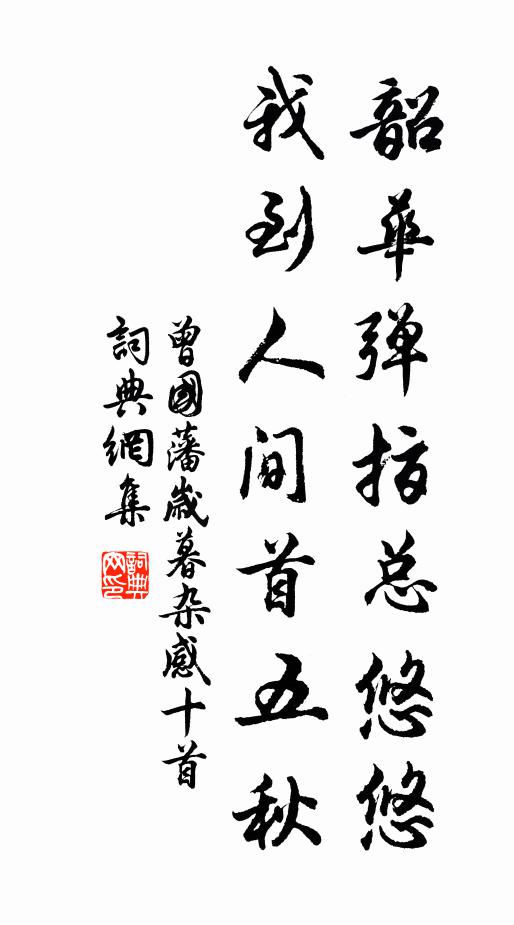 韶華弹指总悠悠
我到人间首五秋
曾國藩歲暮杂感十首
詞典網集
詞典网印